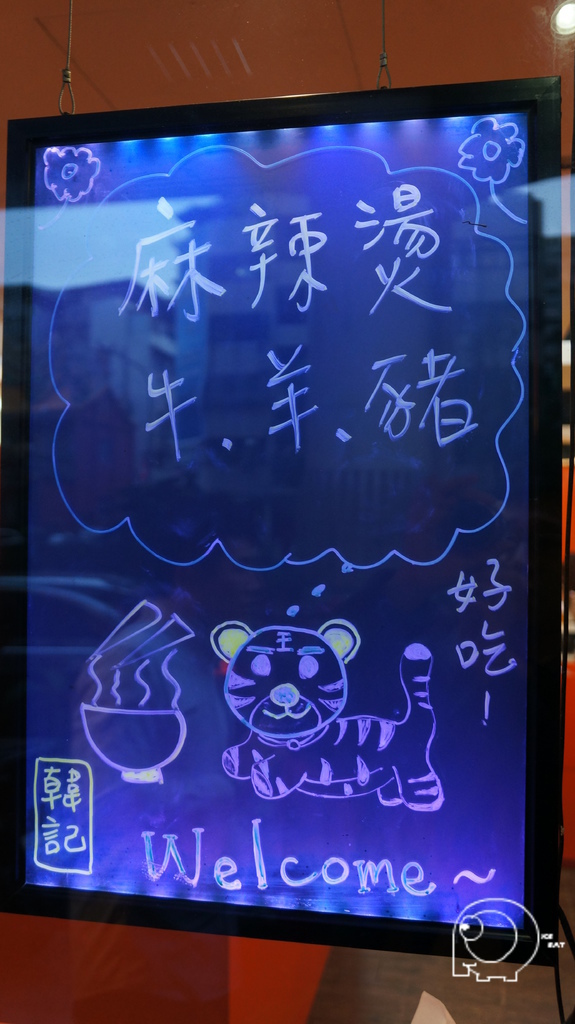 麻辣燙
牛、羊、豬
好吃！
王
韓記
Welcome~
ICE
EAT